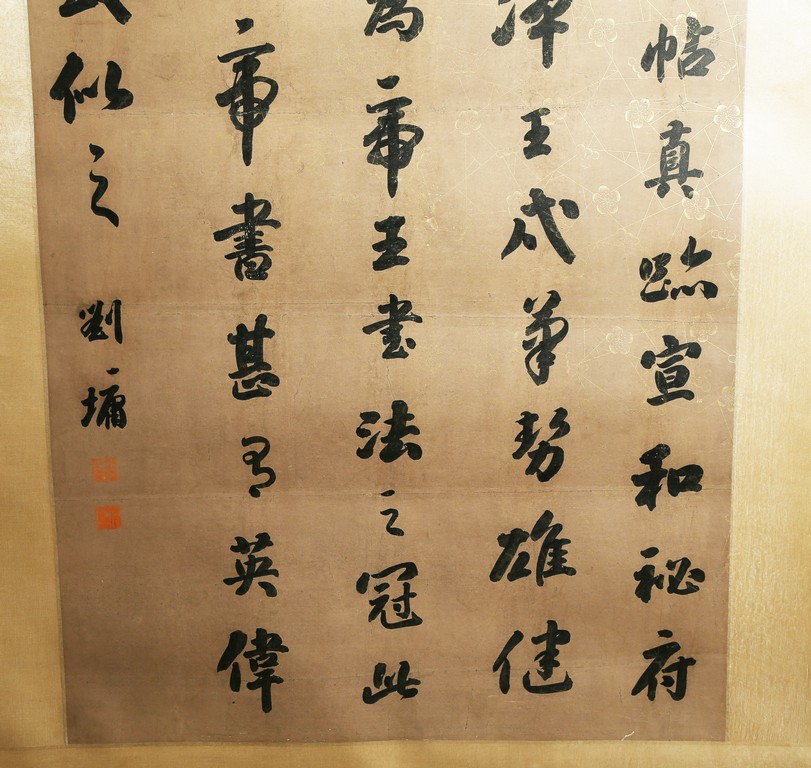 帖真跡宣和祕府
王代筆勢雄健
為帝王書法之冠此
帝書甚有英偉
似之
劉墉